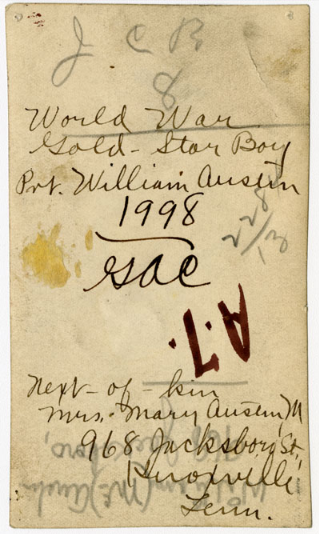 J C B
8
World War
Gold-Star Boy
Pvt. William Austin
1998
GAC
A.T.
Next-of-kin
Mrs. Mary Austin, M
968 Jacksboro St,
Knoxville,
Tenn.